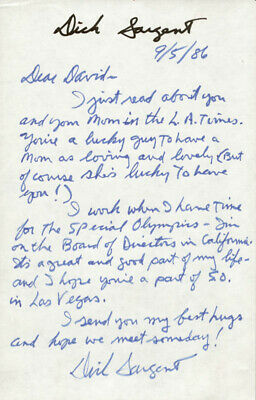 Dick Sargent
9/5/86
Dear David-
I just read about you
and your Mom in the L.A. Times.
You're a lucky guy to have a
Mom as loving and lovely (But
of course she's lucky to have
you!)
I work when I have time
for the Special Olympics - I'm
on the Board of Directors in California.
Its a great and good part of my life-
and I hope you're a part of S.O.
in Las Vegas.
I send you my best hugs
and hope we meet someday!
Dick Sargent